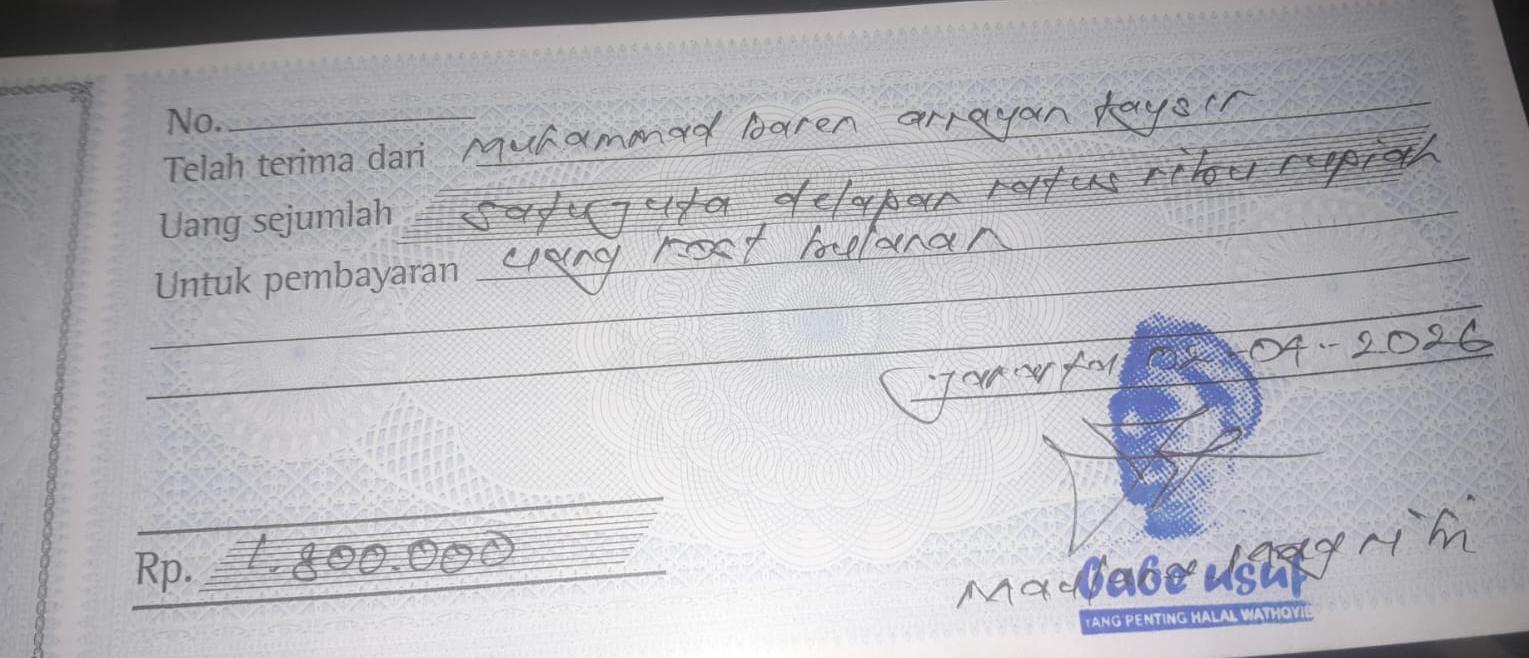 No.
Telah terima dari Muhammad baren arrayan kaysir
Uang sejumlah satu juta delapan ratus ribu rupiah
Untuk pembayaran uang kost bulanan
Jakarta 02-04-2026
Rp. 1.800.000
Babe usup
YANG PENTING HALAL WATHOYIB